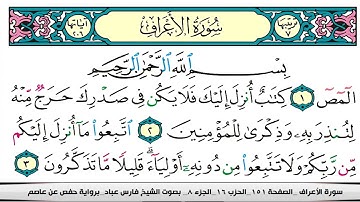 سُورَةُ الأَعْرَافِ
بِسْمِ ٱللَّهِ ٱلرَّحْمَٰنِ ٱلرَّحِيمِ
الٓمٓصٓ ١ كِتَٰبٌ أُنزِلَ إِلَيْكَ فَلَا يَكُن فِى صَدْرِكَ حَرَجٌ مِّنْهُ
لِتُنذِرَ بِهِۦ وَذِكْرَىٰ لِلْمُؤْمِنِينَ ٢ ٱتَّبِعُوا۟ مَآ أُنزِلَ إِلَيْكُم
مِّن رَّبِّكُمْ وَلَا تَتَّبِعُوا۟ مِن دُونِهِۦٓ أَوْلِيَآءَ ۗ قَلِيلًا مَّا تَذَكَّرُونَ ٣
سورة الأعراف _ الصفحة ١٥١ _ الحزب ١٦ _ الجزء ٨ _ بصوت الشيخ فارس عباد _ برواية حفص عن عاصم